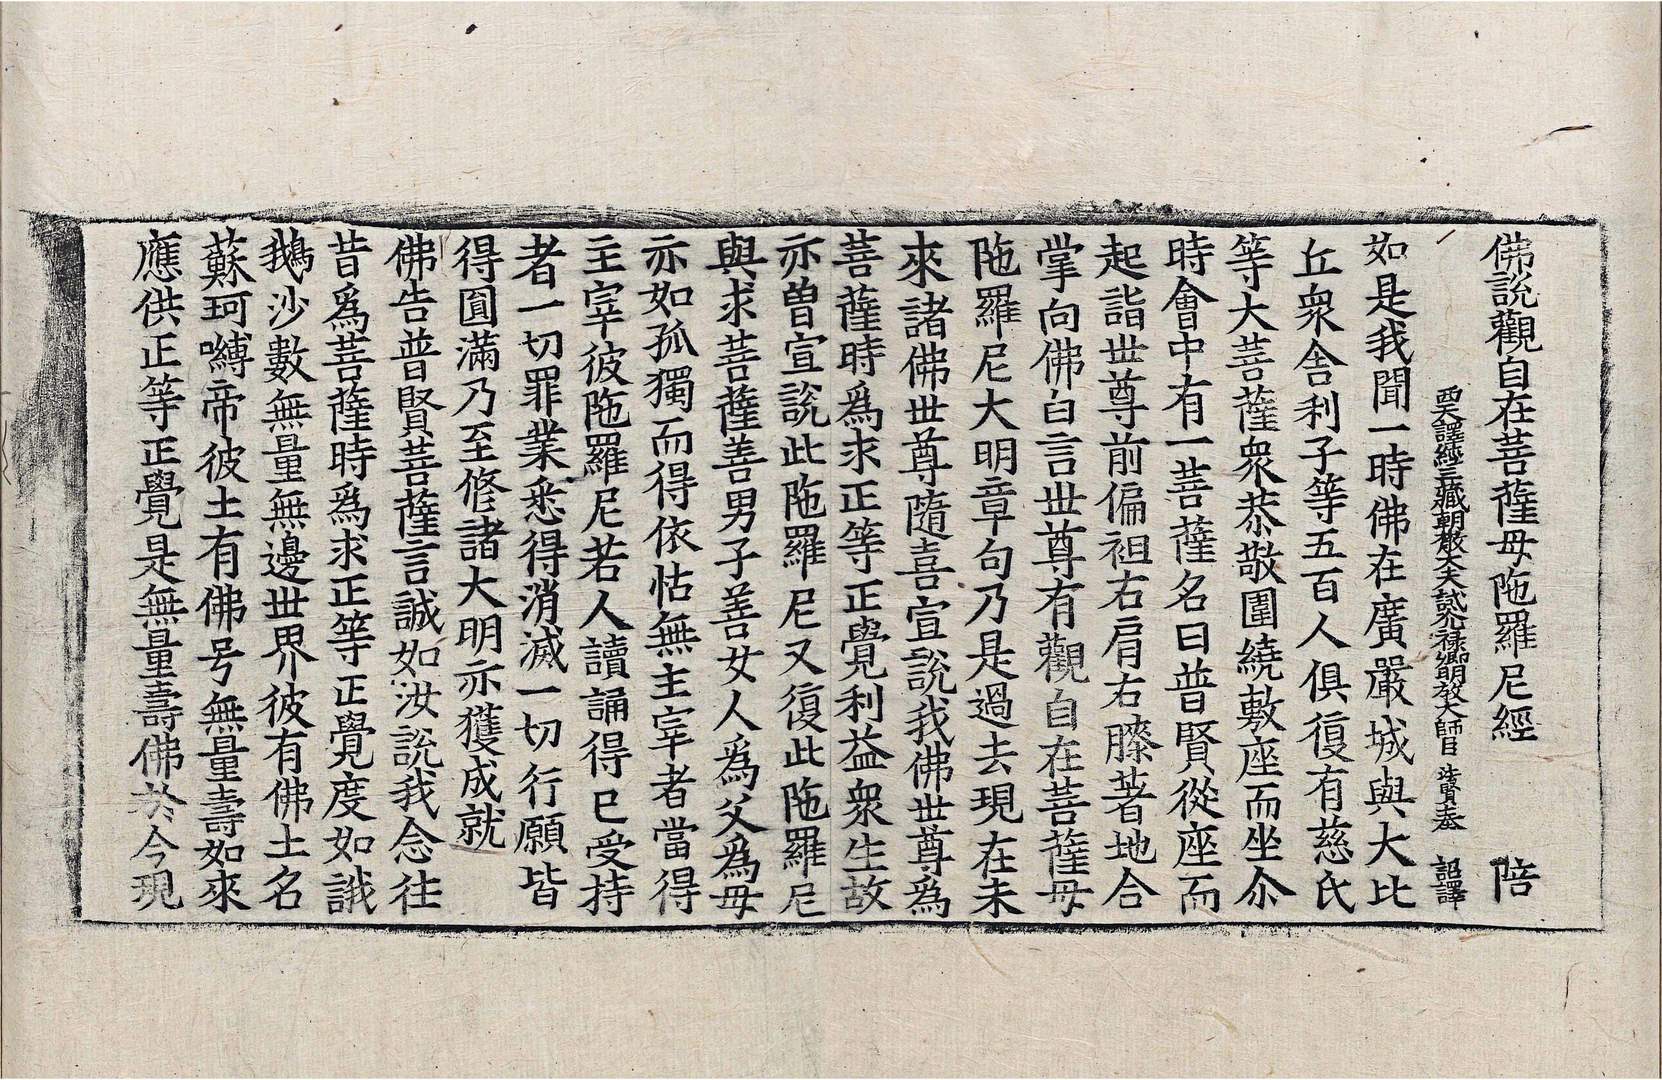 佛說觀自在菩薩母陁羅尼經 陪
西天譯經三藏朝散大夫試光祿卿明教大師臣法賢奉 詔譯
如是我聞一時佛在廣嚴城與大比
丘衆舍利子等五百人俱復有慈氏
等大菩薩衆恭敬圍繞敷座而坐尒
時會中有一菩薩名曰普賢從座而
起詣世尊前偏袒右肩右膝著地合
掌向佛白言世尊有觀自在菩薩母
陁羅尼大明章句乃是過去現在未
來諸佛世尊隨喜宣說我佛世尊爲
菩薩時爲求正等正覺利益衆生故
亦曾宣說此陁羅尼又復此陁羅尼
與求菩薩善男子善女人爲父爲母
亦如孤獨而得依怙無主宰者當得
主宰彼陁羅尼若人讀誦得已受持
者一切罪業悉得消滅一切行願皆
得圓滿乃至修諸大明亦獲成就
佛告普賢菩薩言誠如汝說我念往
昔爲菩薩時爲求正等正覺度如誐
鵝沙數無量無邊世界彼有佛土名
蘇珂嚩帝彼土有佛号無量壽如來
應供正等正覺是無量壽佛於今現